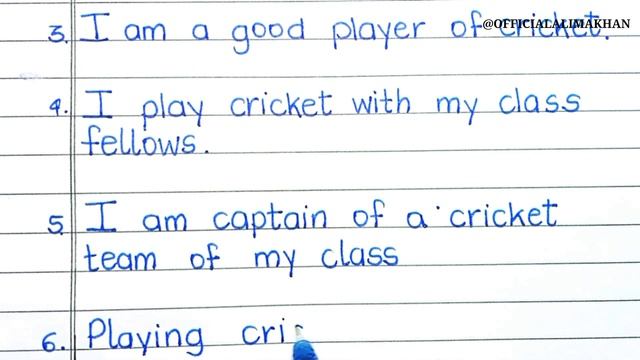 @OFFICIALALIMAKHAN
3. I am a good player of cricket.
4. I play cricket with my class
fellows.
5. I am captain of a cricket
team of my class
6. Playing cri